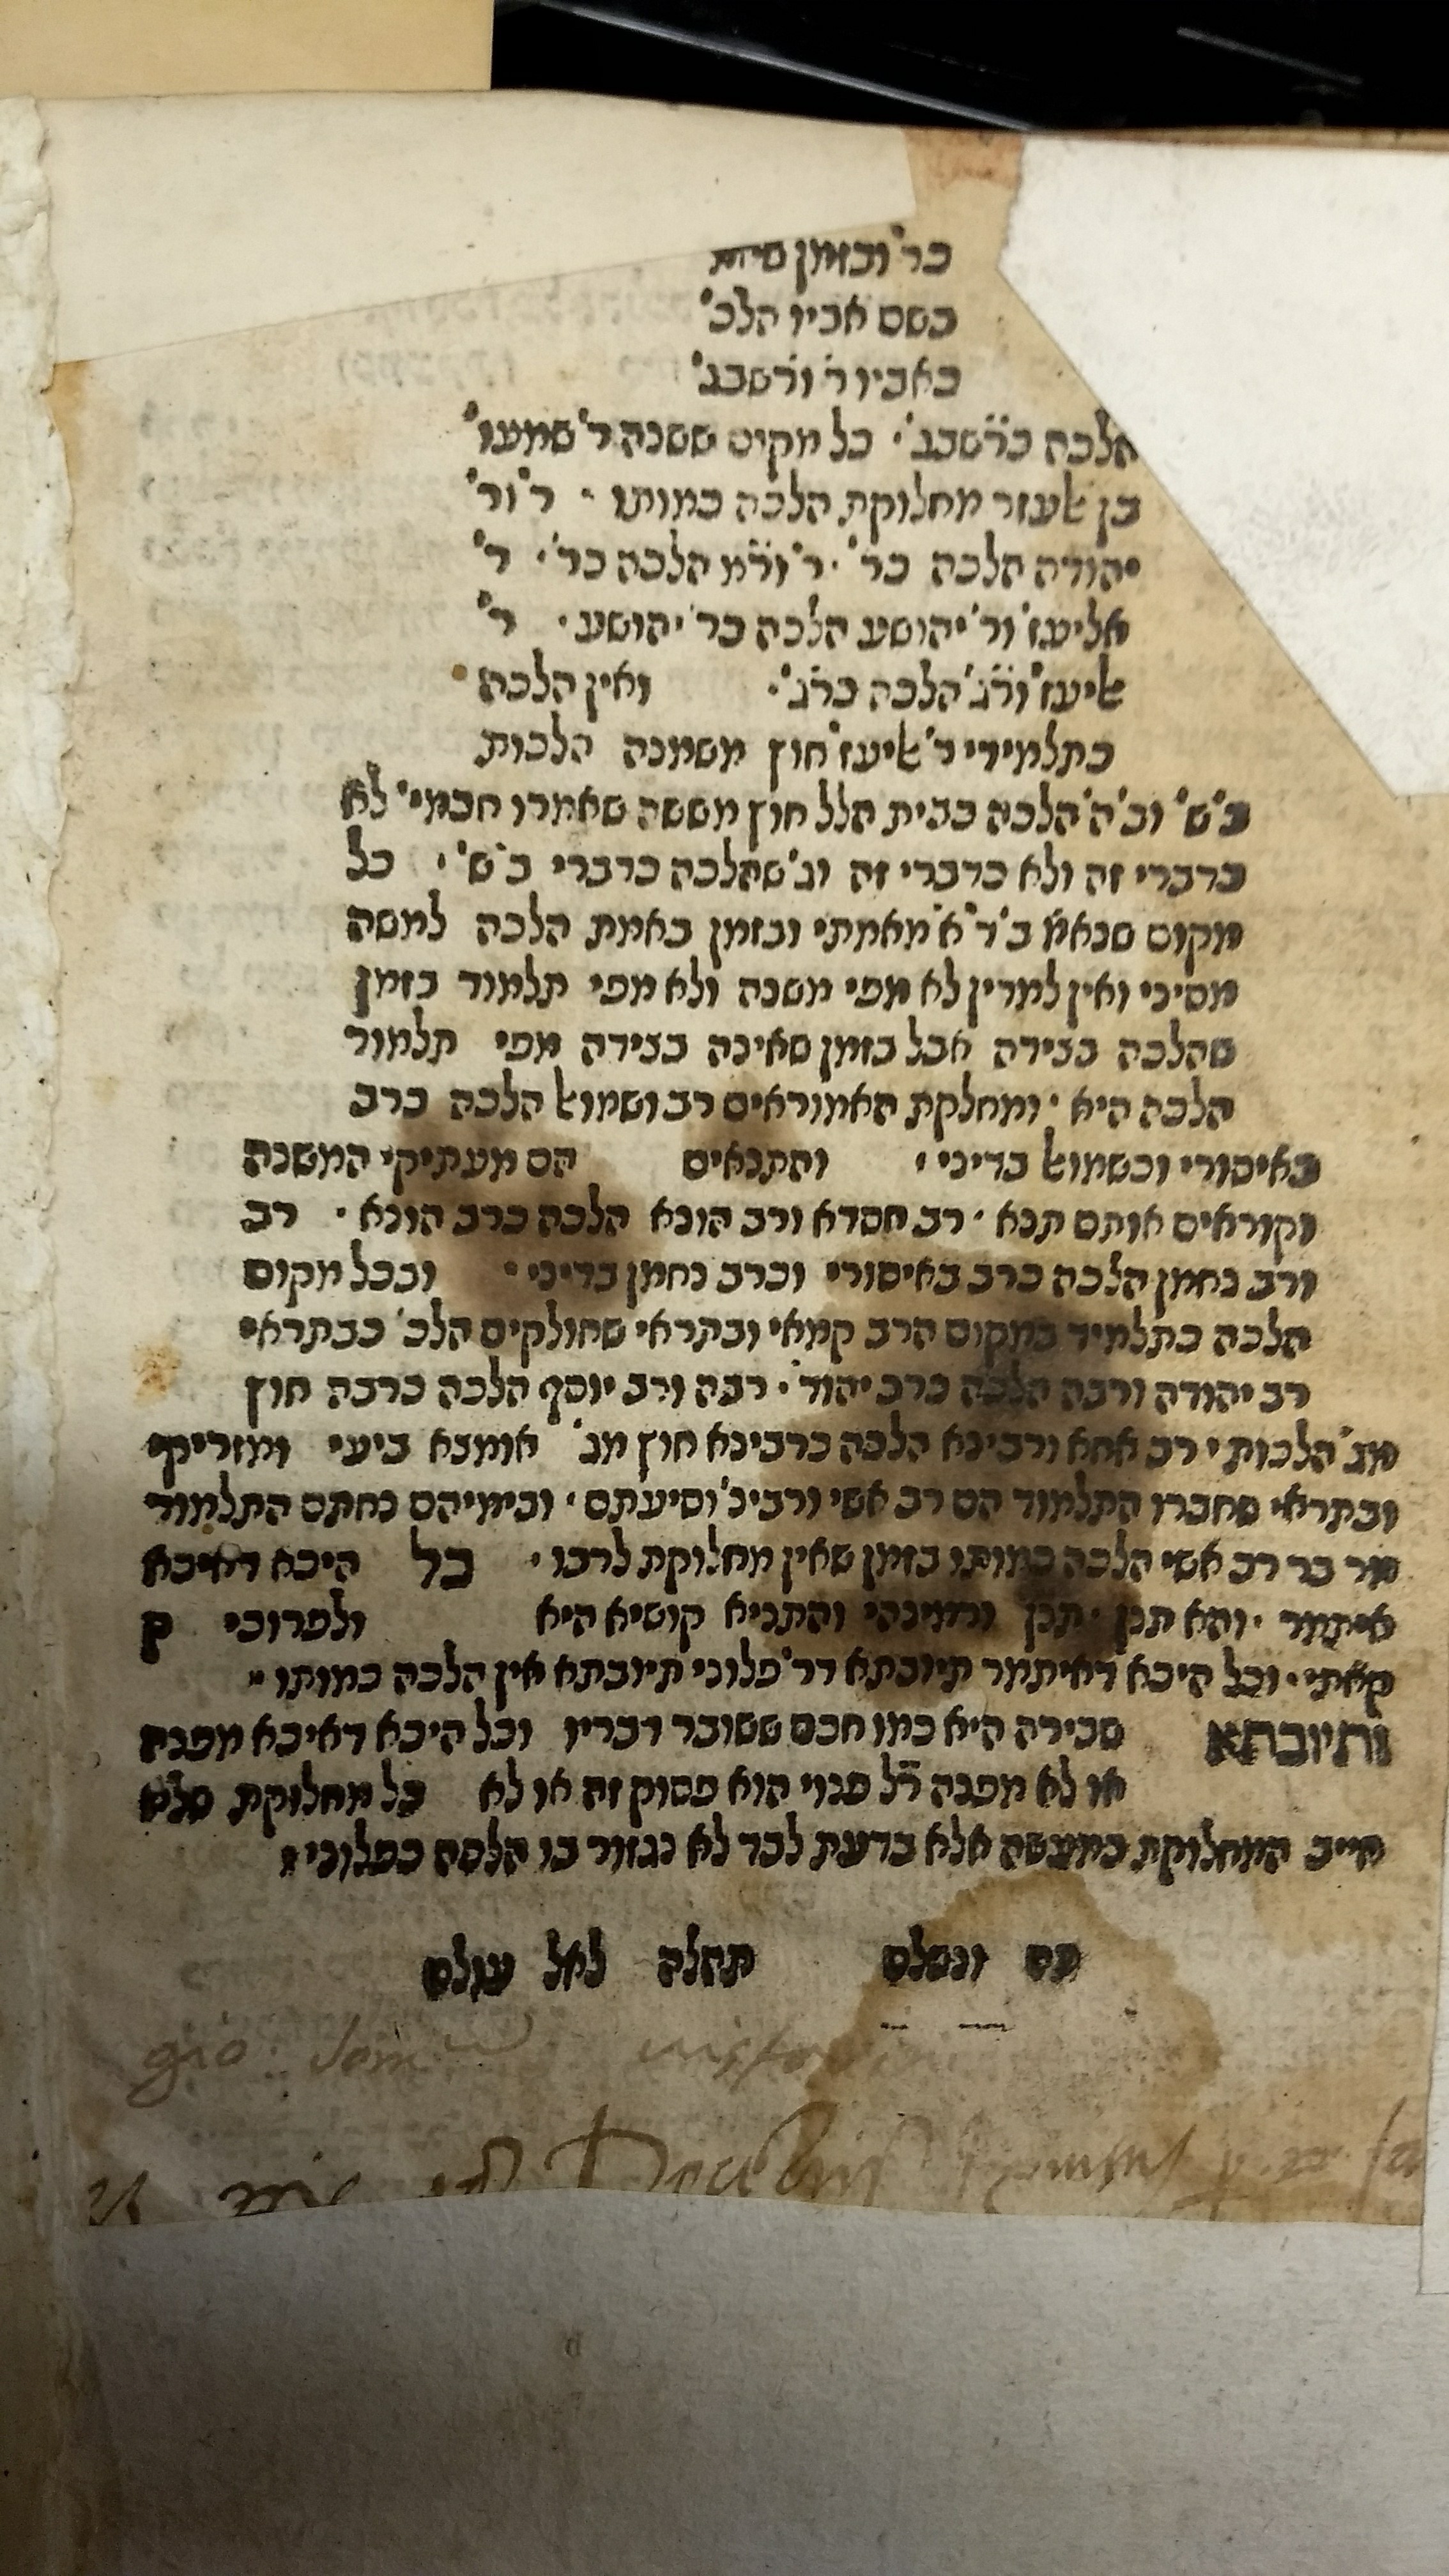 כר' ובזמן
בשם אביו הלכ'
כאביו ר' ורשבג'
הלכה כרשבג'. כל מקום ששנה ר' שמעו'
בן אלעזר מחלוקת הלכה כמותו. ר' ור'
יהודה הלכה כר'. ר' ור'מ הלכה כר'. ר'
אליעז' ור' יהושע הלכה כר' יהושע. ר'
אליעז' ור'ג' הלכה כר'ג'. ואין הלכה
כתלמידי ר' אליעז' חוץ משמנה הלכות
ב'ש' וב'ה' הלכה כבית הלל חוץ מששה שאמרו חכמי' לא
כדברי זה ולא כדברי זה וג' שהלכה כדברי ב'ש'. כל
מקום שנאמ' ב'ד'א' מאמתי ובזמן באמת הלכה למשה
מסיני ואין למדין לא מפי משנה ולא מפי תלמוד בזמן
שהלכה בצידה אבל בזמן שאינה בצידה מפי תלמוד
הלכה היא. ומחלקת האמוראים רב ושמואל הלכה כרב
באיסורי וכשמואל בדיני. והתנאים הם מעתיקי המשנה
וקוראים אותם תנא. רב חסדא ורב הונא הלכה כרב הונא. רב
ורב נחמן הלכה כרב באיסורי וכרב נחמן בדיני. ובכל מקום
הלכה כתלמיד במקום הרב קמאי ובתראי שחולקים הלכ' כבתראי
רב יהודה ורבה הלכה כרב יהוד'. רבה ורב יוסף הלכה כרבה חוץ
מג' הלכות. רב אחא ורבינא הלכה כרבינא חוץ מג' אומצא ביעי ומזריקי
ובתראי שחברו התלמוד הם רב אשי ורבינ' וסיעתם. ובימיהם נחתם התלמוד
מר בר רב אשי הלכה כמותו בזמן שאין מחלוקת לרבו. כל היכא דאיכא
איתמר. והא תנן. תנן ורמינהי והתניא קושיא היא ולפרוכי ק
קאתי. וכל היכא דאיתמר תיובתא דר' פלוני תיובתא אין הלכה כמותו
ותיובתא שבירה היא כמו חכם ששובר דבריו וכל היכא דאיכא מפנה
או לא מפנה ר'ל פנוי הוא פסוק זה או לא כל מחלוקת שלא
המחלוקת במעשה אלא בדעת לבד לא נגזור בו הלכה כפלוני
תם ונשלם תהלה לאל עולם
gio: dom